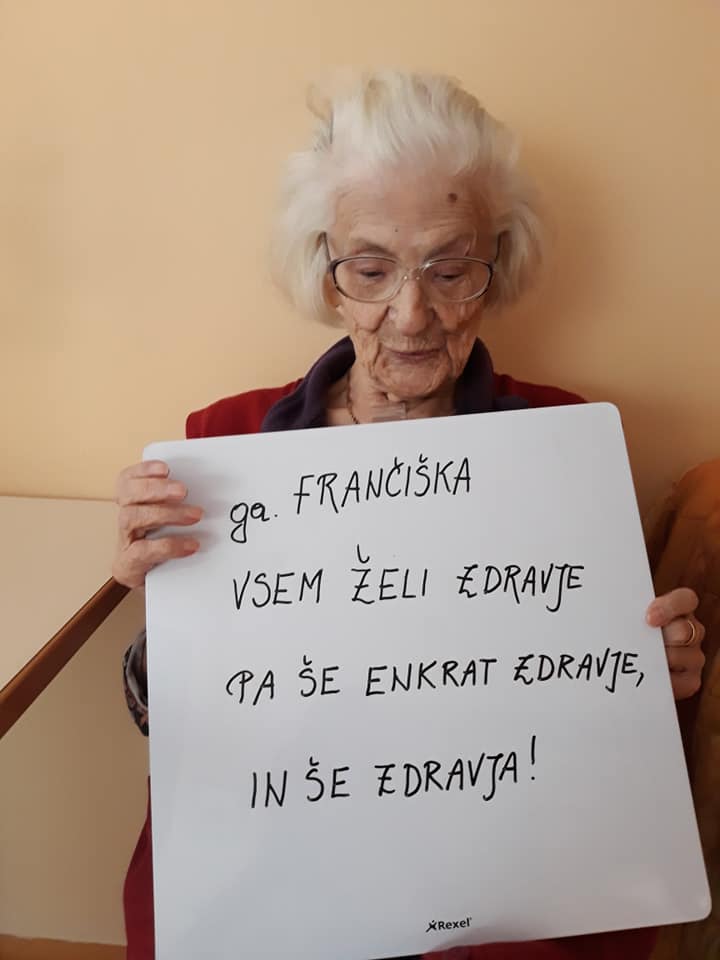 ga. FRANČIŠKA
VSEM ŽELI ZDRAVJE
PA ŠE ENKRAT ZDRAVJE,
IN ŠE ZDRAVJA!
Rexel